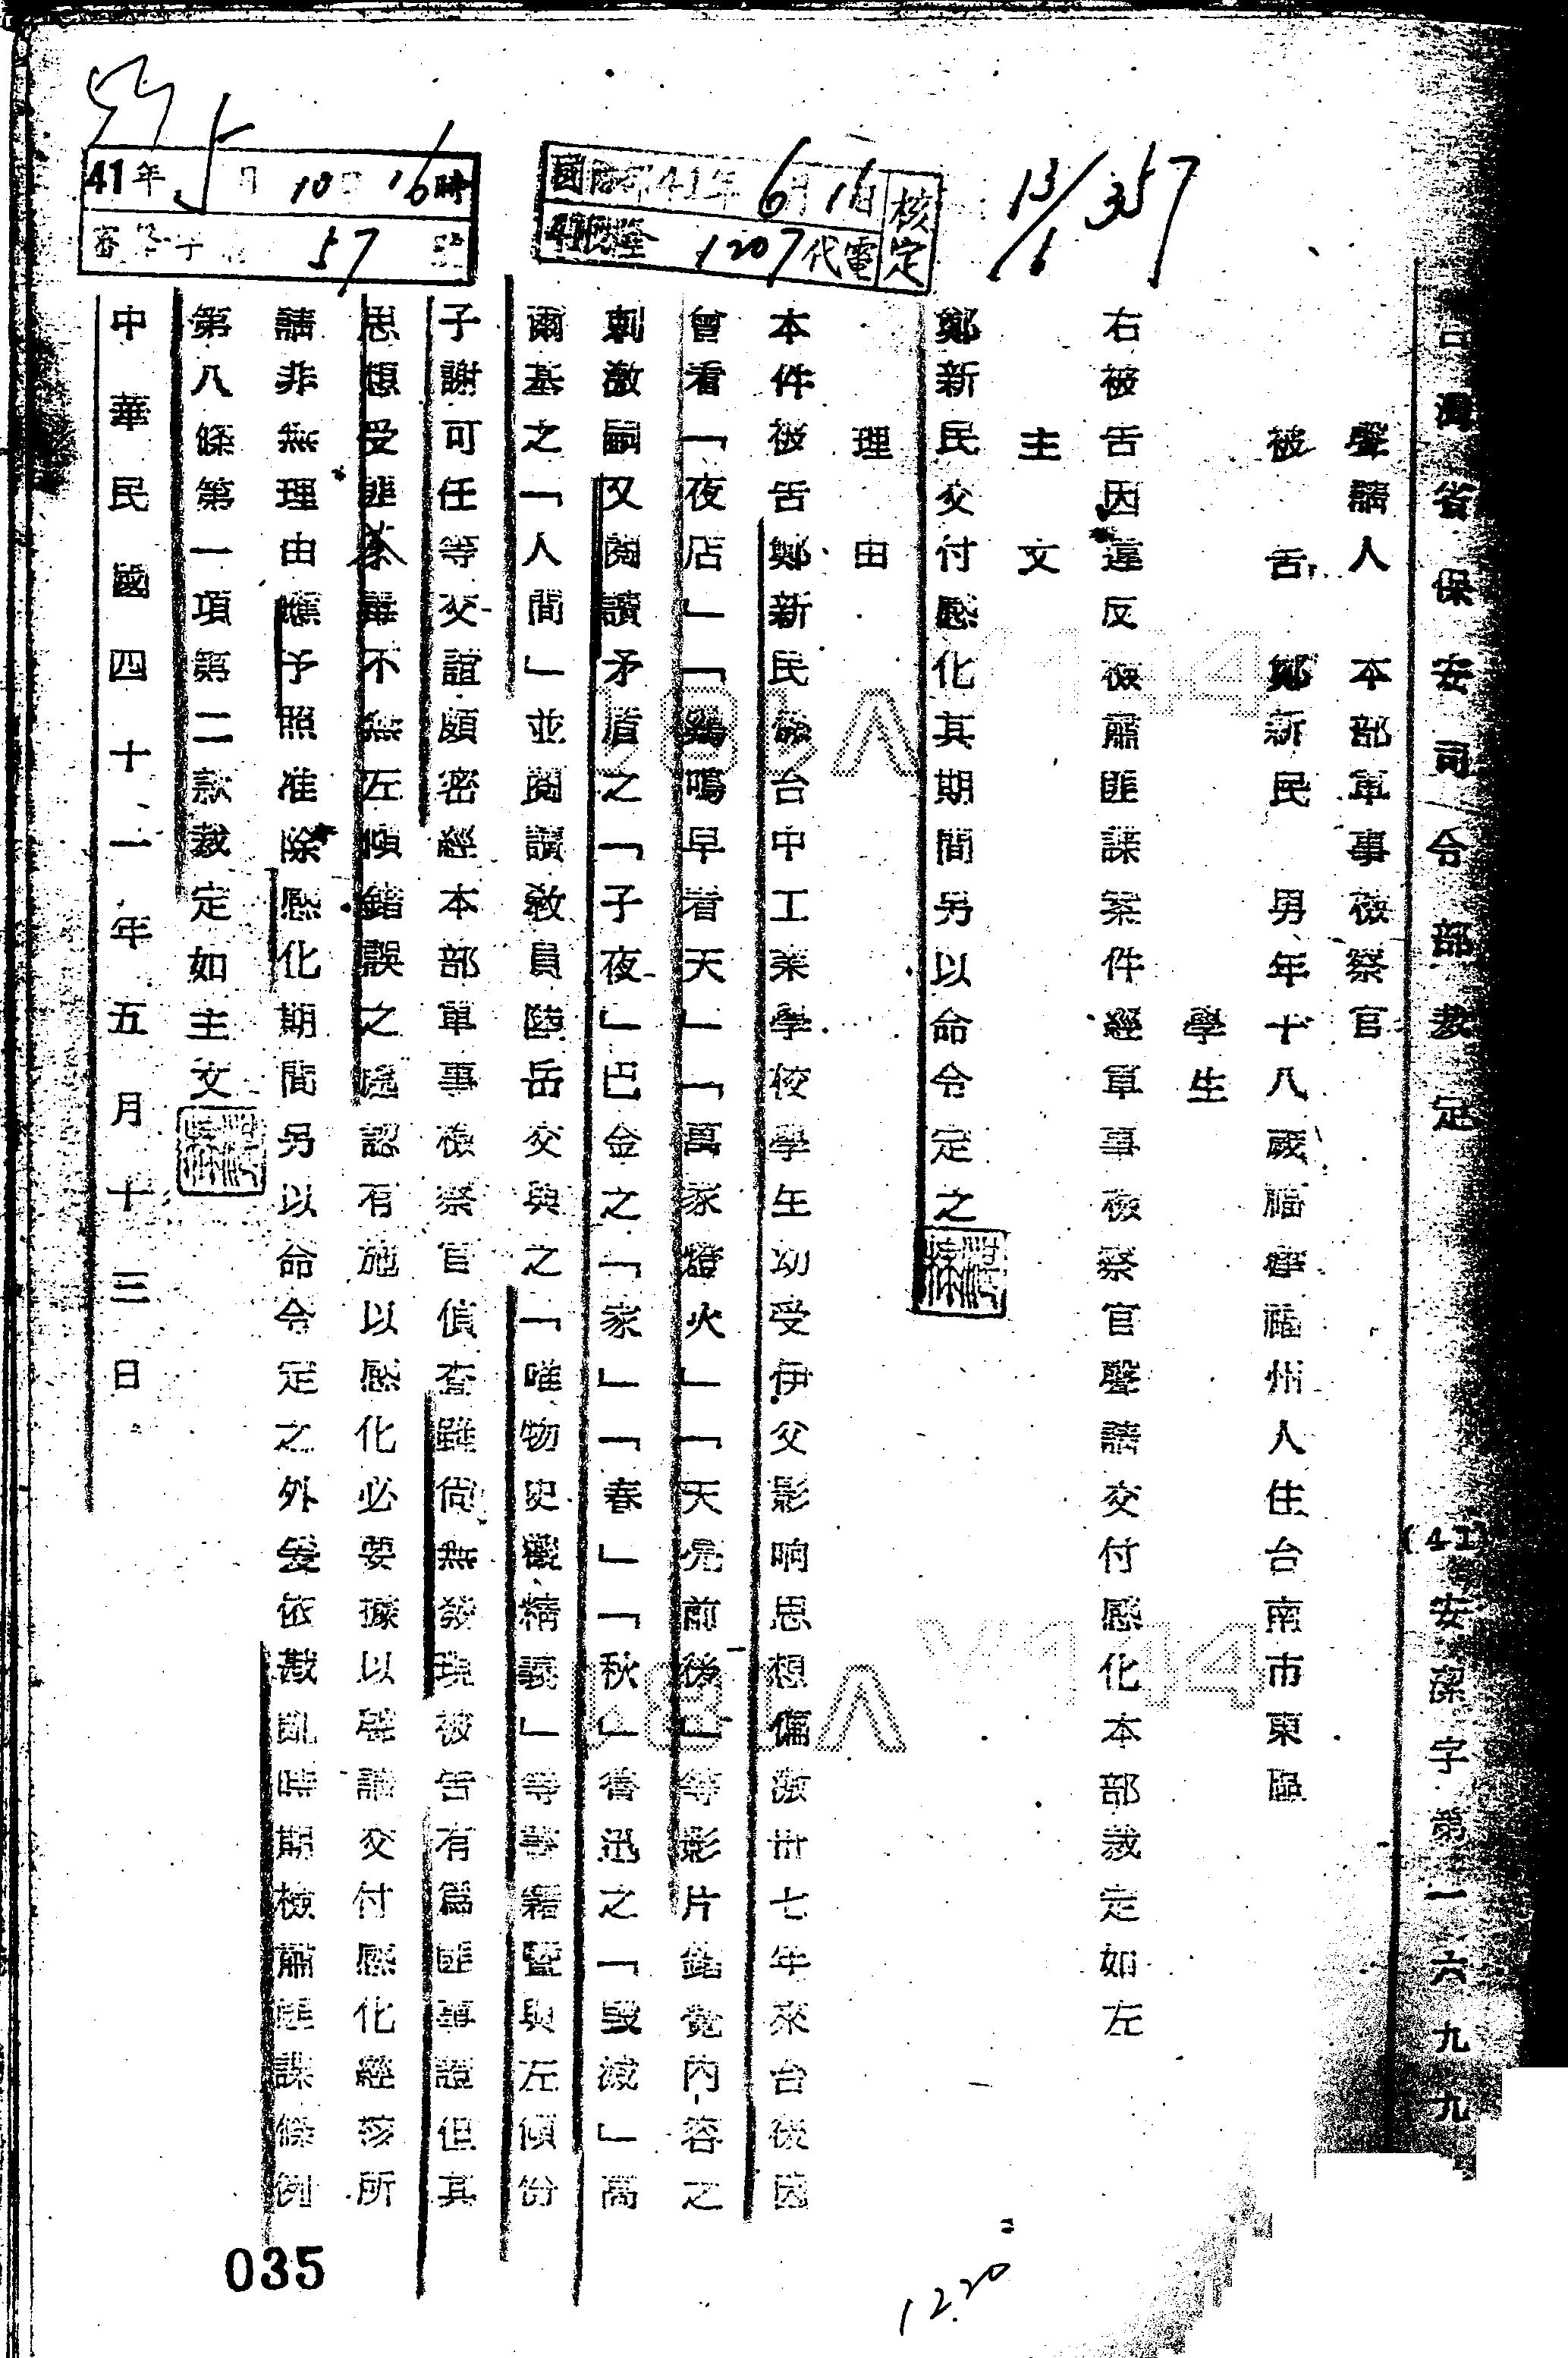 台灣省保安司令部裁定 (41)安潔字第一六九九
聲請人 本部軍事檢察官
被告 鄭新民 男年十八歲福建福州人住台南市東區
學生
右被告因違反檢肅匪諜案件經軍事檢察官聲請交付感化本部裁定如左
主文
鄭新民交付感化其期間另以命令定之
理由
本件被告鄭新民係台中工業學校學生幼受伊父影响思想偏激卅七年來台後因
曾看「夜店」「鷄鳴早看天」「萬家燈火」「天亮前後」等影片錯覺內容之
刺激嗣又閱讀矛盾之「子夜」巴金之「家」「春」「秋」魯迅之「毀滅」高
爾基之「人間」並閱讀教員陸岳交與之「唯物史觀精義」等等書籍暨與左傾份
子謝可任等交誼頗密經本部軍事檢察官偵查雖尚無發現被告有爲匪事證但其
思想受匪 不無左傾錯誤之處認有施以感化必要據以聲請交付感化經核所
請非無理由應予照准除感化期間另以命令定之外爰依戡亂時期檢肅匪諜條例
第八條第一項第二款裁定如主文
中華民國四十一年五月十三日
41年5月10日16時
57
國防部41年6月16日
1207代電
核定
13/6
357
V144
V181
V144
V181
035
1220